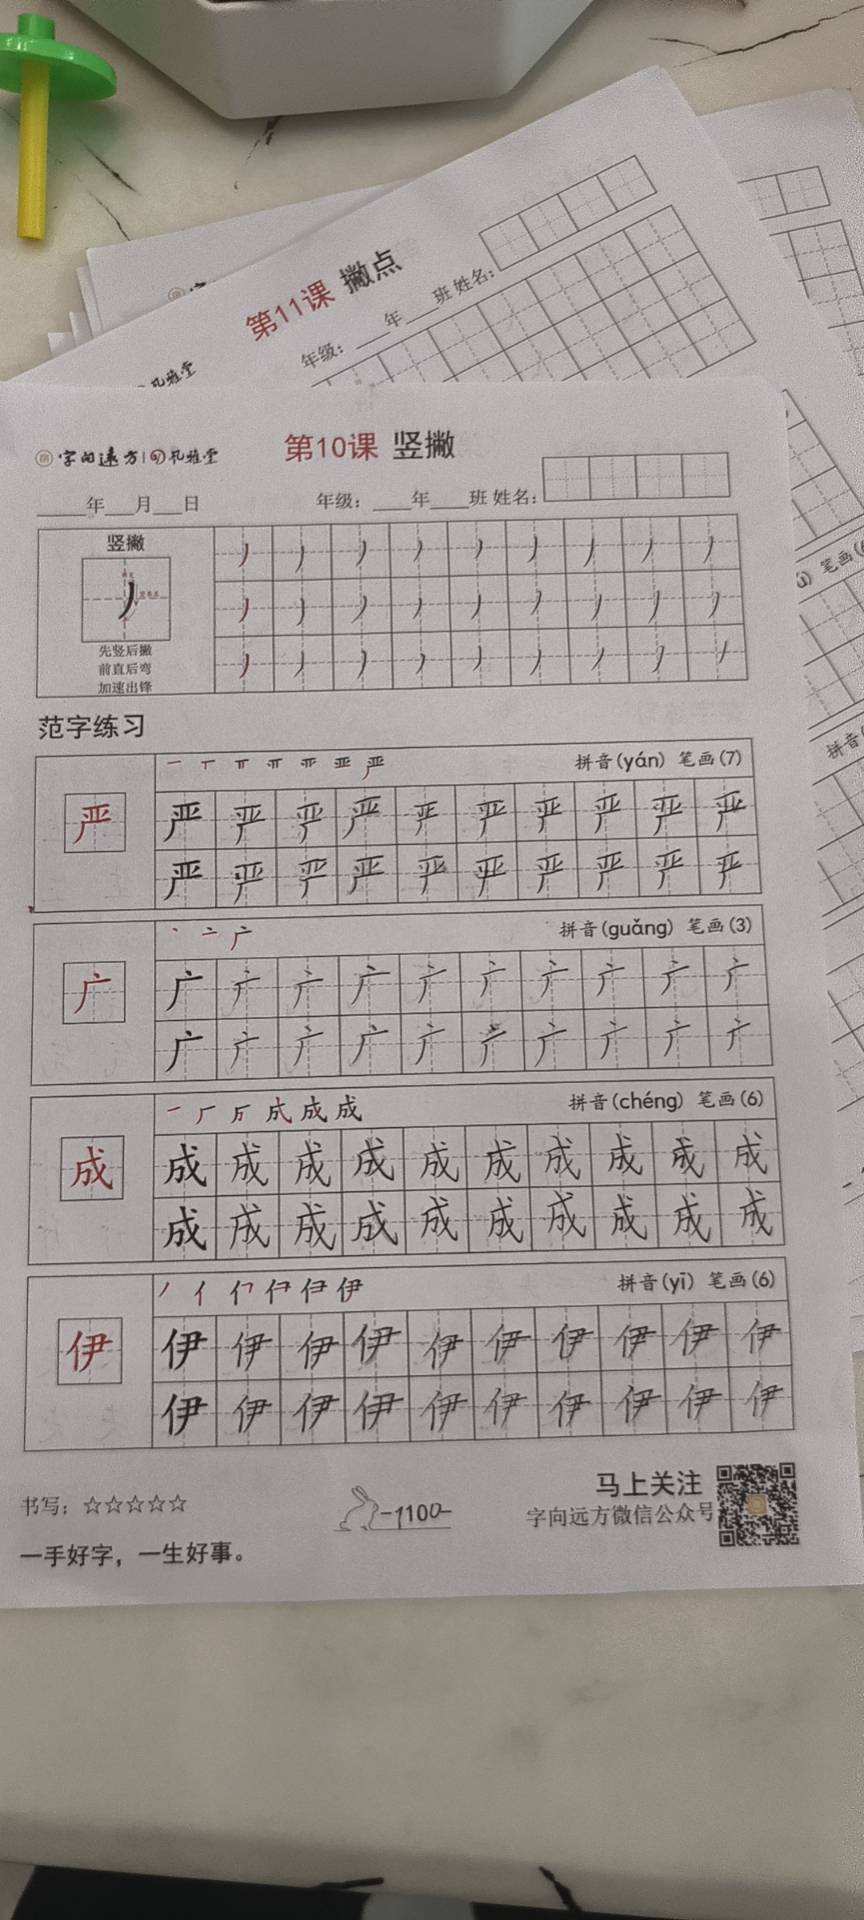 第11课 撇点
年级：____年____班 姓名：
礼雅堂
字向远方 礼雅堂
第10课 竖撇
____年___月___日 年级：____年____班 姓名：
竖撇
先竖后撇
前直后弯
加速出锋
范字练习
拼音(yán) 笔画(7)
严 严 严 严 严 严 严 严 严 严 严
严 严 严 严 严 严 严 严 严 严
拼音(guǎng) 笔画(3)
广 广 广 广 广 广 广 广 广 广 广
广 广 广 广 广 广 广 广 广 广
拼音(chéng) 笔画(6)
成 成 成 成 成 成 成 成 成 成 成
成 成 成 成 成 成 成 成 成 成
拼音(yī) 笔画(6)
伊 伊 伊 伊 伊 伊 伊 伊 伊 伊 伊
伊 伊 伊 伊 伊 伊 伊 伊 伊 伊
书写：☆☆☆☆☆
-1100-
马上关注
字向远方微信公众号
一手好字，一生好事。
笔画
拼音